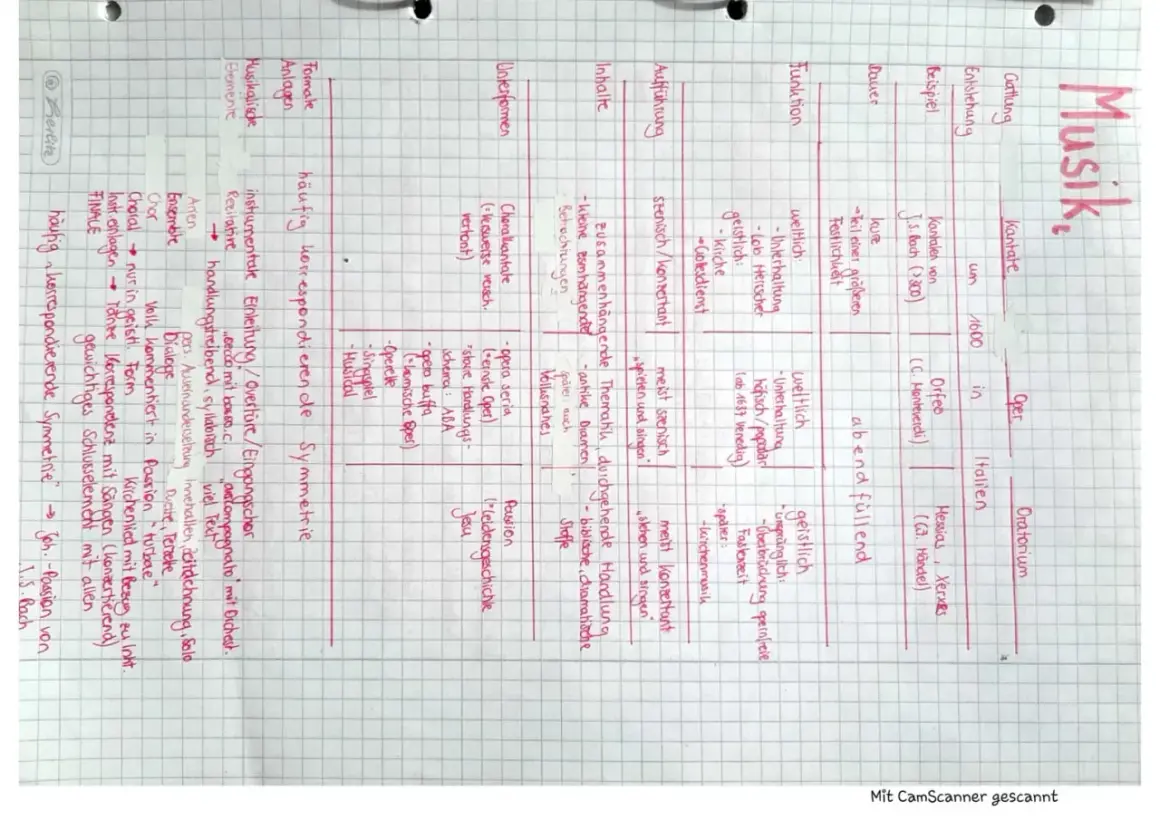 Musik
Gattung Kantate Oper Oratorium
Entstehung um 1600 in Italien
Beispiel Kantaten von Orfeo Messias, Xerxes
J.S. Bach (>300) (C. Monteverdi) (G.F. Händel)
Dauer kurz abendfüllend
→ Teil einer größeren
Festlichkeit
Funktion weltlich: weltlich geistlich
- Unterhaltung - Unterhaltung - ursprünglich:
- Lob Herrscher höfisch/populär - Überbrückung opernfreie
geistlich: (ab 1637 Venedig) Fastenzeit
- Kirche - später:
→ Gottesdienst - Kirchenmusik
Aufführung szenisch/konzertant meist szenisch meist konzertant
"spielen und singen" "stehen und singen"
Inhalte zusammenhängende Thematik, durchgehende Handlung
- kleine zsmhängende - antike Dramen - biblische, dramatische
Betrachtungen später auch Stoffe
Volksnahes
Unterformen Choralkantate - opera seria Passion
(= versweise versch. (= ernste Oper) (= Leidensgeschichte
vertont) - starre Handlungs- Jesu
schema: ABA
- opera buffa
(= komische Oper)
- Operette
- Singspiel
- Musical
Formale häufig korrespondierende Symmetrie
Anlagen
Musikalische instrumentale Einleitung / Ovetüre / Eingangschor
Elemente Rezitative "secco" mit basso c. "accompagnato" mit Orchest.
→ handlungstreibend, syllabisch viel Text
Arien pers. Auseinandersetzung Innehalten, Zeitdehnung, Solo
Ensemble Dialoge Duette, Terzette
Chor Volk kommentiert in Passion "turbae"
Choral → nur in geistl. Form Kirchenlied mit Bezug zu Inht.
Instr.einlagen → Tänze Korrespondenz mit Sängern (konzertierend)
FINALE gewichtiges Schlusselement mit allen
häufig "korrespondierende Symmetrie" → Joh.-Passion von
J.S. Bach
Mit CamScanner gescannt